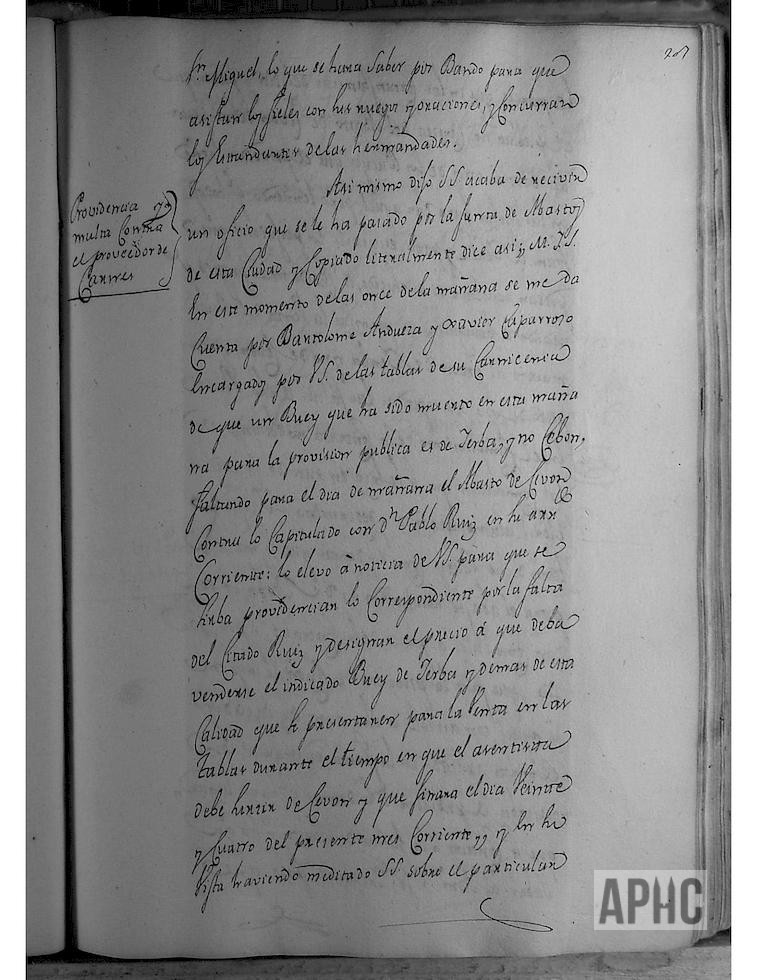 207
Sn. Miguel, lo que se hara saber por Bando para que
asistan los fieles con sus ruegos y oraciones, y concurran
los Estandartes de las hermandades.
Asi mismo dijo SS. acaba de recivir
Providencia y
multa Contra
el proveedor de
Carnes
un oficio que se le ha pasado por la Junta de Abastos
de esta Ciudad y Copiado literalmente dice asi, M. I. S.
En este momento de las once de la mañana se me da
Cuenta por Bartolome Andueza y Xavier Caparroso
Encargados por VS. de las tablas de su Carniceria
de que un Buey que ha sido muerto en esta maña
na para la provision publica es de Ierba, y no Cebon,
faltando para el dia de mañana el Abasto de Cevon
Contra lo Capitulado con dn. Pablo Ruiz en su arrdo
Corriente: lo elevo à noticia de VS. para que se
sirba providenciar lo Correspondiente por la falta
del Citado Ruiz y designar el precio à que deba
venderse el indicado Buey de Ierba y demas de esta
Calidad que se presentaren para la Venta en las
tablas durante el tiempo en que el arentista
debe surtir de Cevon y que finara el dia Veinte
y Cuatro del presente mes Corriente, y En su
Vista haviendo meditado SS. sobre el particular
APHC